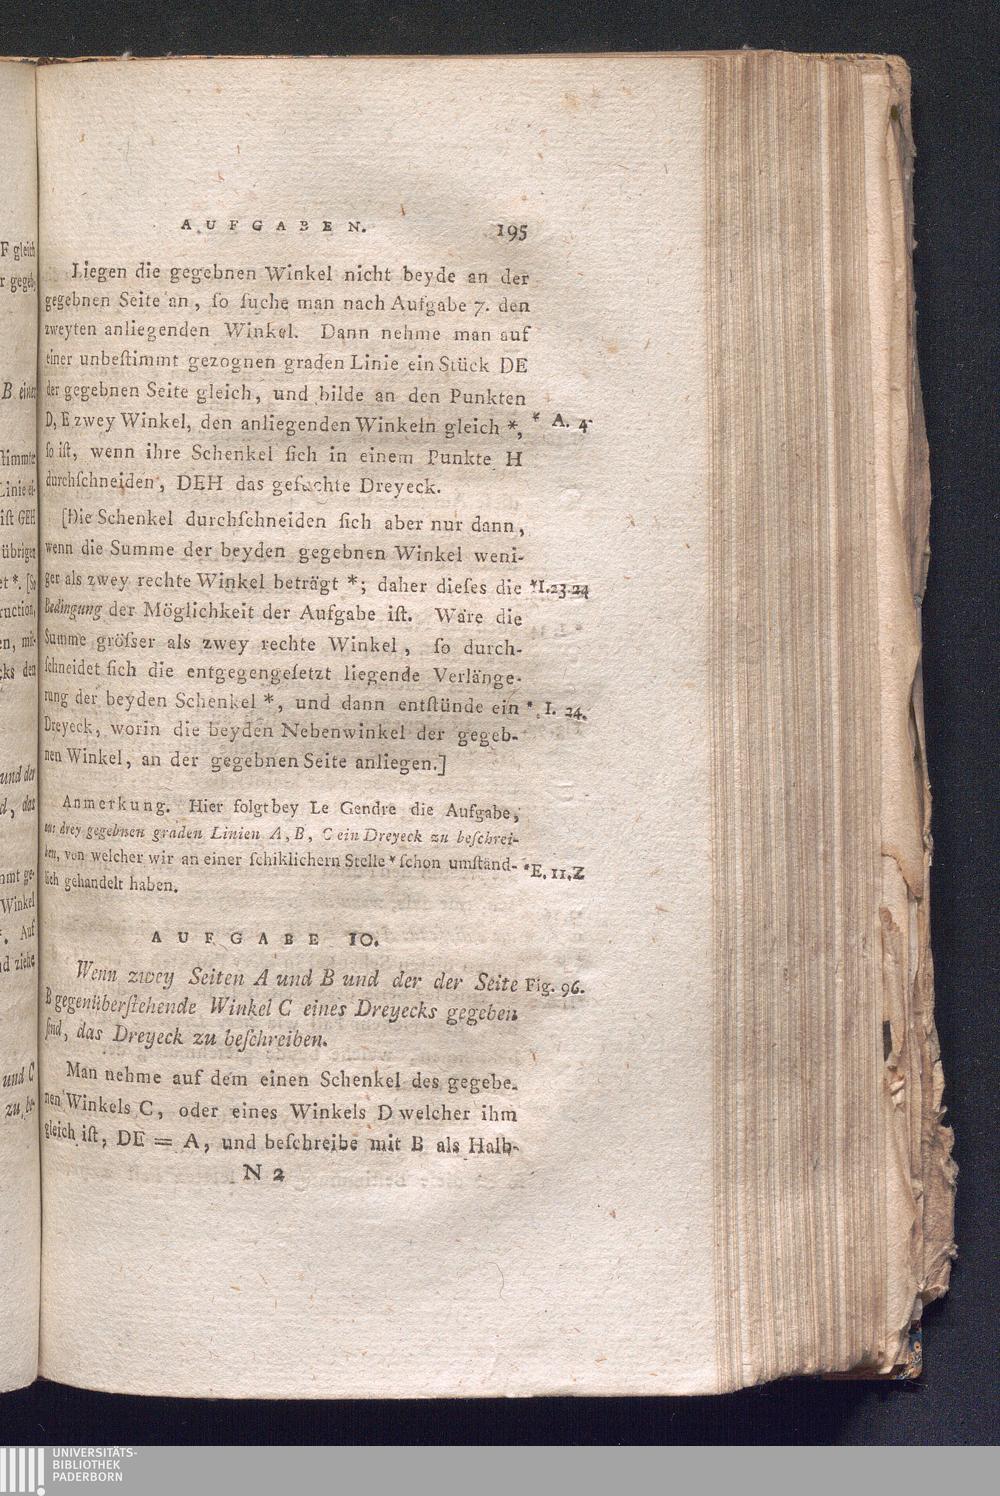 AUFGABEN. 195
Liegen die gegebnen Winkel nicht beyde an der
gegebnen Seite an, ſo ſuche man nach Aufgabe 7. den
zweyten anliegenden Winkel. Dann nehme man auf
einer unbeſtimmt gezognen graden Linie ein Stück DE
der gegebnen Seite gleich, und bilde an den Punkten
D, E zwey Winkel, den anliegenden Winkeln gleich *, * A. 4.
ſo iſt, wenn ihre Schenkel ſich in einem Punkte H
durchſchneiden, DEH das geſuchte Dreyeck.
[Die Schenkel durchſchneiden ſich aber nur dann,
wenn die Summe der beyden gegebnen Winkel weni-
ger als zwey rechte Winkel beträgt *; daher dieſes die *I.23.24
Bedingung der Möglichkeit der Aufgabe iſt. Wäre die
Summe gröſser als zwey rechte Winkel, ſo durch-
ſchneidet ſich die entgegengeſetzt liegende Verlänge-
rung der beyden Schenkel *, und dann entſtünde ein *. I. 24.
Dreyeck, worin die beyden Nebenwinkel der gegeb-
nen Winkel, an der gegebnen Seite anliegen.]
Anmerkung. Hier folgt bey Le Gendre die Aufgabe,
aus drey gegebnen graden Linien A, B, C ein Dreyeck zu beſchrei-
ben, von welcher wir an einer ſchiklichern Stelle * ſchon umſtänd- *E. 11. Z
lich gehandelt haben.
AUFGABE 10.
Wenn zwey Seiten A und B und der der Seite Fig. 96.
B gegenüberſtehende Winkel C eines Dreyecks gegeben
ſind, das Dreyeck zu beſchreiben.
Man nehme auf dem einen Schenkel des gegebe-
nen Winkels C, oder eines Winkels D welcher ihm
gleich iſt, DE = A, und beſchreibe mit B als Halb-
N 2
F gleich
r gegeb-
B einer
ſtimmte
Linie ei-
iſt GEH
übrigen
et *. [So
ruction,
en, mit-
cks den
und der
d, das
mmt ge-
Winkel
*. Auf
nd ziehe
und C
zu be-
UNIVERSITÄTS-
BIBLIOTHEK
PADERBORN